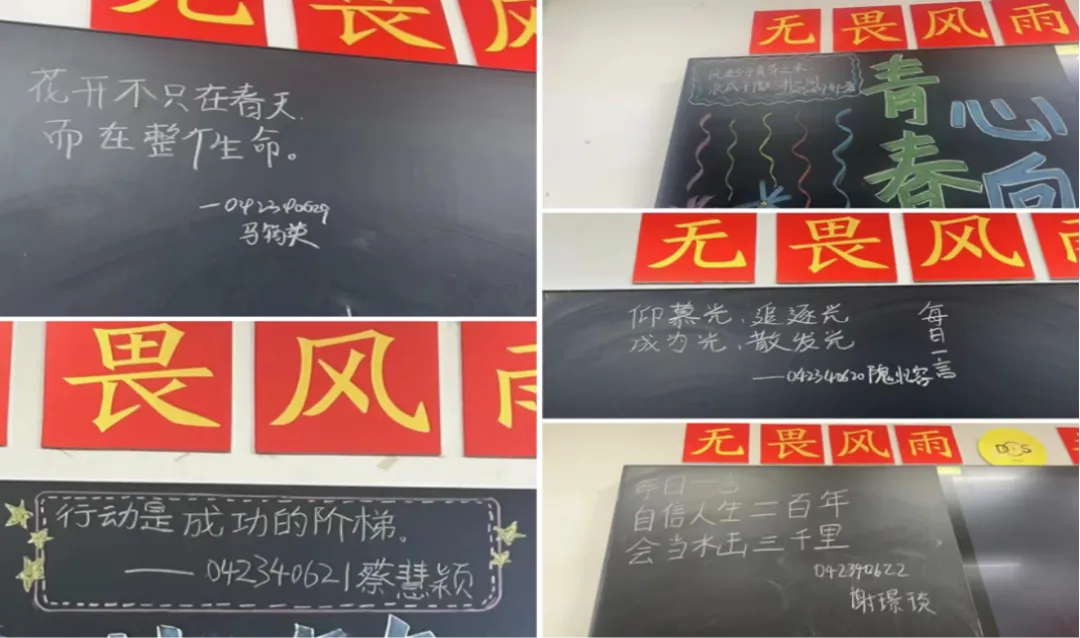 无 畏 风
花开不只在春天.
而在整个生命。
—042340629
马筠英
无 畏 风 雨
青春
心向
畏 风 雨
行动是成功的阶梯。
—— 042340621 蔡慧颖
无 畏 风 雨
仰慕光、追逐光
成为光、散发光
每日一言
——042340620
无 畏 风 雨
每日一言
自信人生二百年
会当水击三千里
042340622
谢璟琰